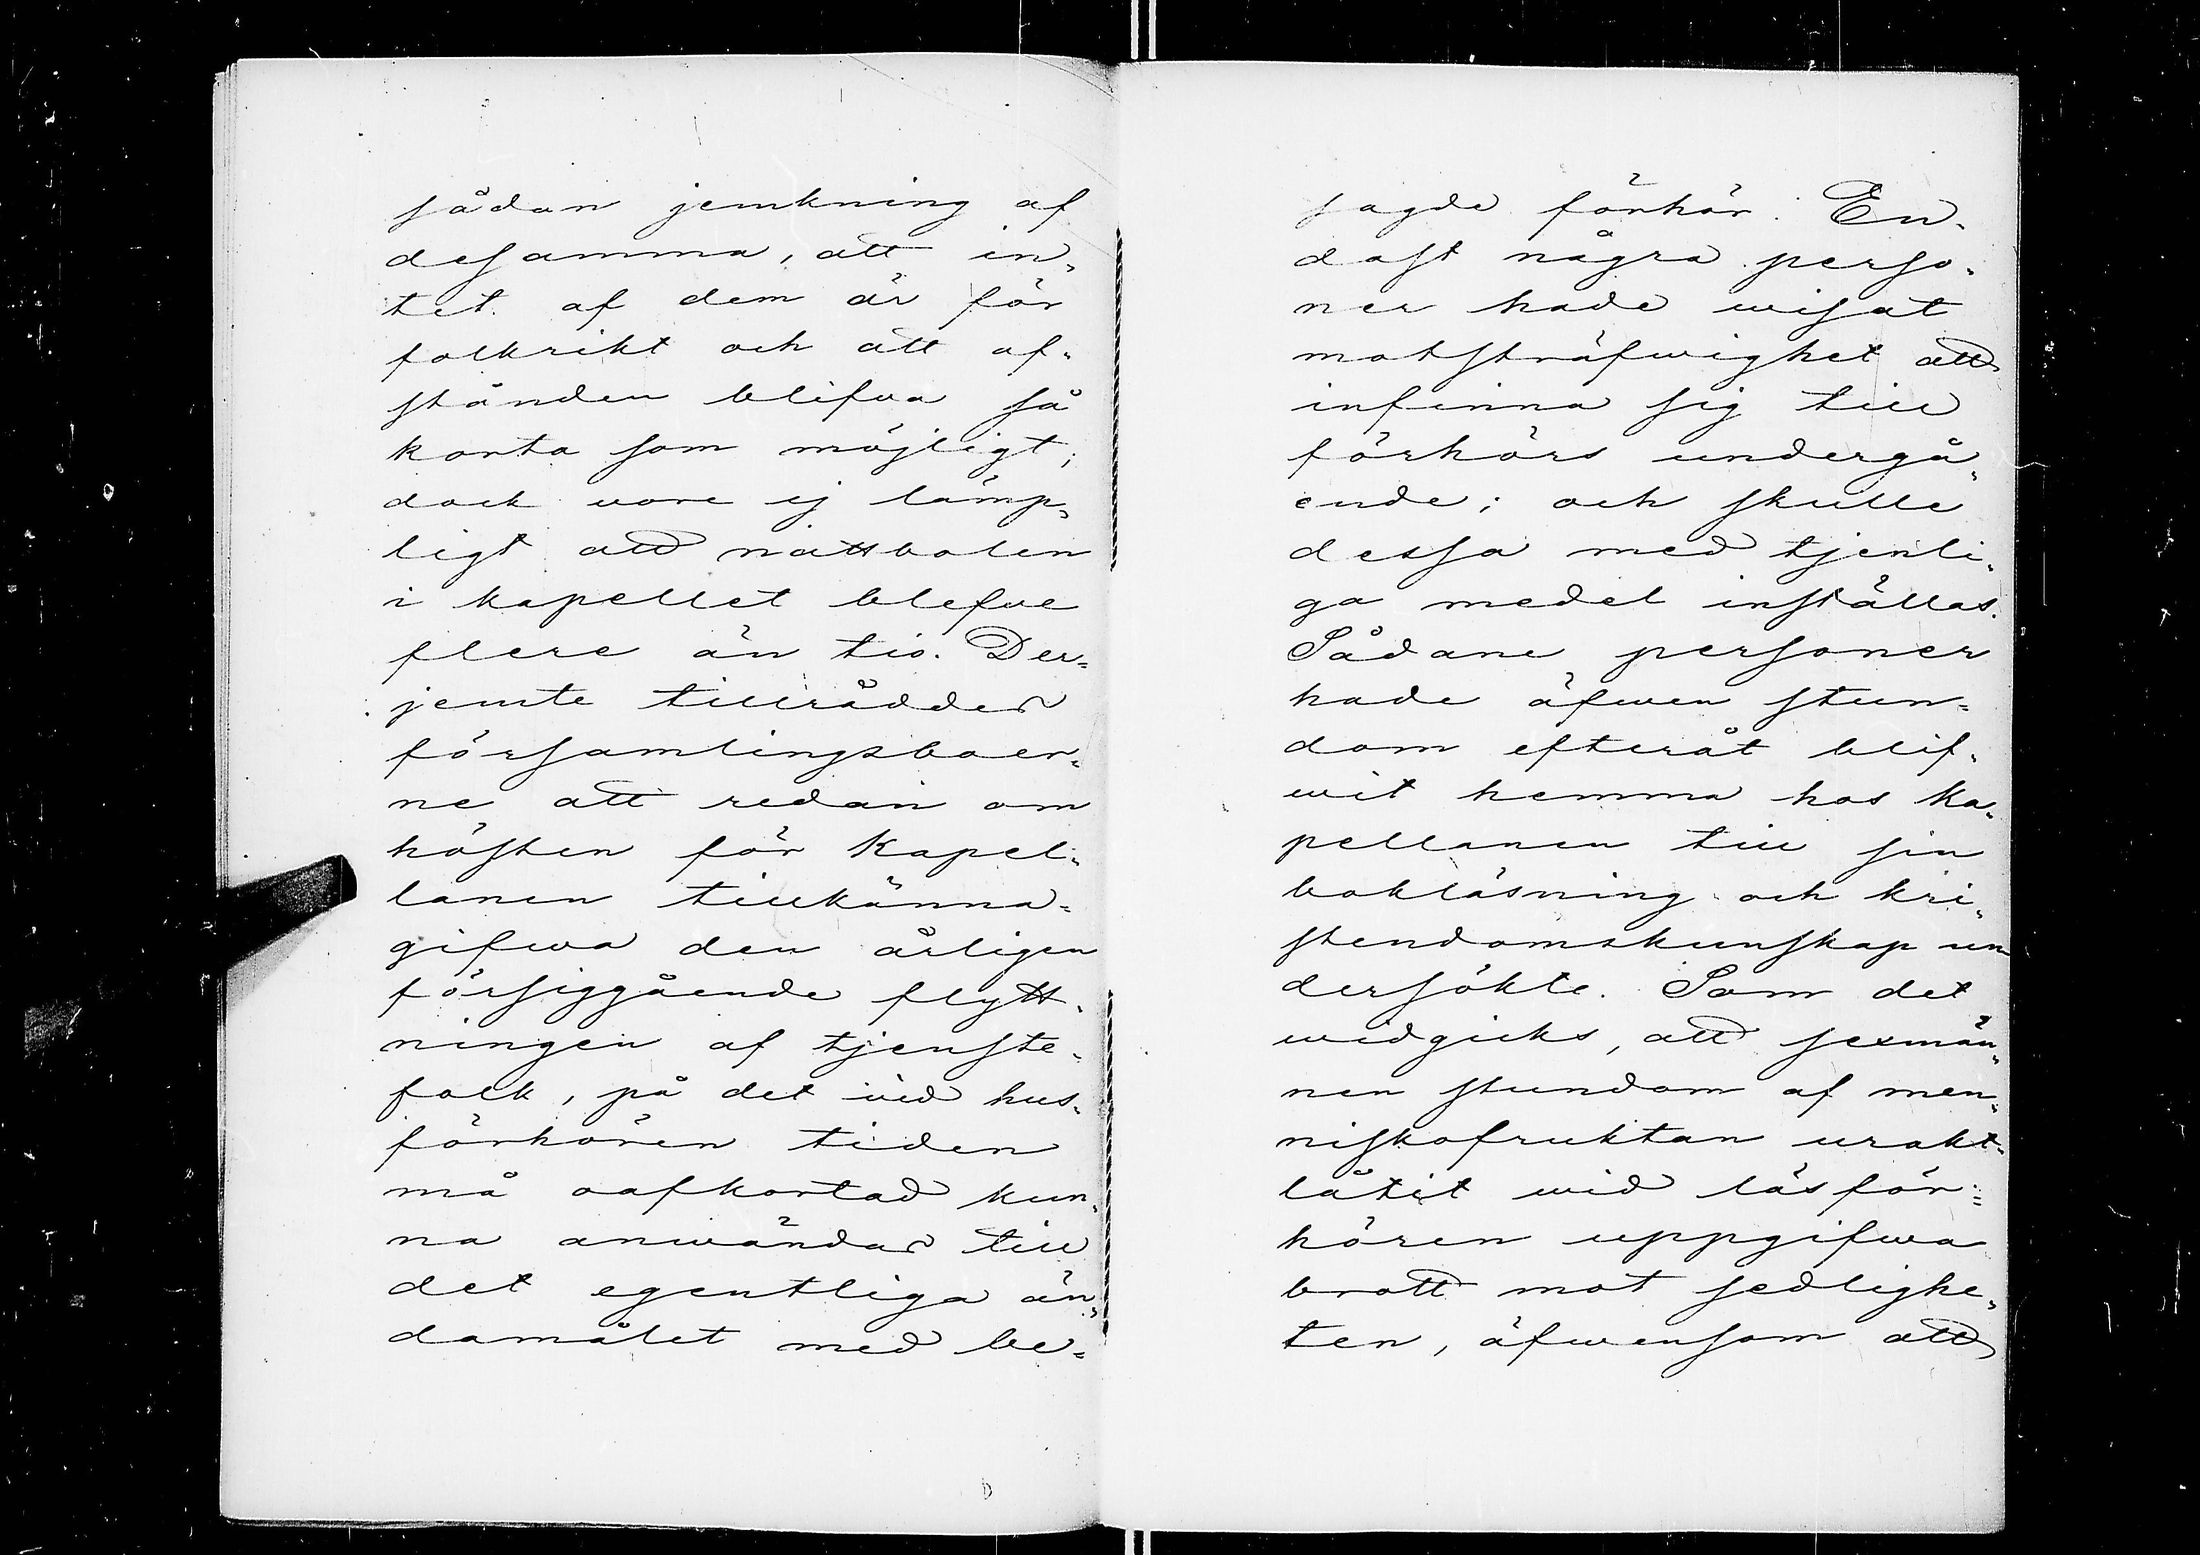 sådan jemkning af
desamma, att in-
tet af dem är för
folkrikt och att af-
stånden blifva så
korta som möjligt;
dock vore ej lämp-
ligt att nattvolen
i kapellet blefve
flere än tio. Der-
jemte tillråddes
församlingsboer-
ne att redan om
hösten för Kapel-
lanen tillkänna-
gifwa den årligen
försiggående flytt-
ningen af tjenste-
folk, på det vid hus-
förhören tiden
må oafkortad kun-
na anwändas till
det egentliga än-
damålet med be-
sagde förhör. En-
dast några perso-
ner hade wisat
motsträfwighet att
infinna sig till
förhörs undergå-
ende; och skulle
dessa med tjenli-
ga medel inställas.
Sådane personer
hade äfwen stun-
dom efteråt blif-
wit hemma hos Ka-
pellanen till sin
bokläsning och kri-
stendomskunskap un
dersökte. Som det
widgicks, att sexmän-
nen stundom af men-
niskofruktan urakt-
låtit wid läsför-
hören uppgifwa
brott mot sedlighe-
ten, äfwensom att